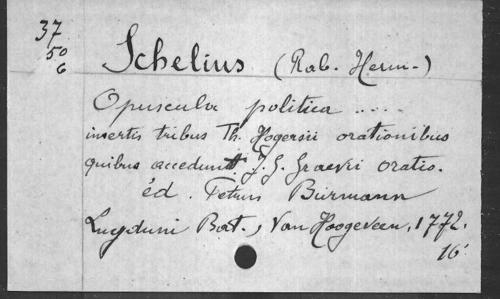 37
50
6
Schelius (Rab. Herm.)
Opuscula politica ....
insertis tribus Th. Hogersii orationibus
quibus accedunt J. G. Graevii oratio.
éd. Petrus Burmann
Lugduni Bat., Van Hoogeveen, 1772.
16°